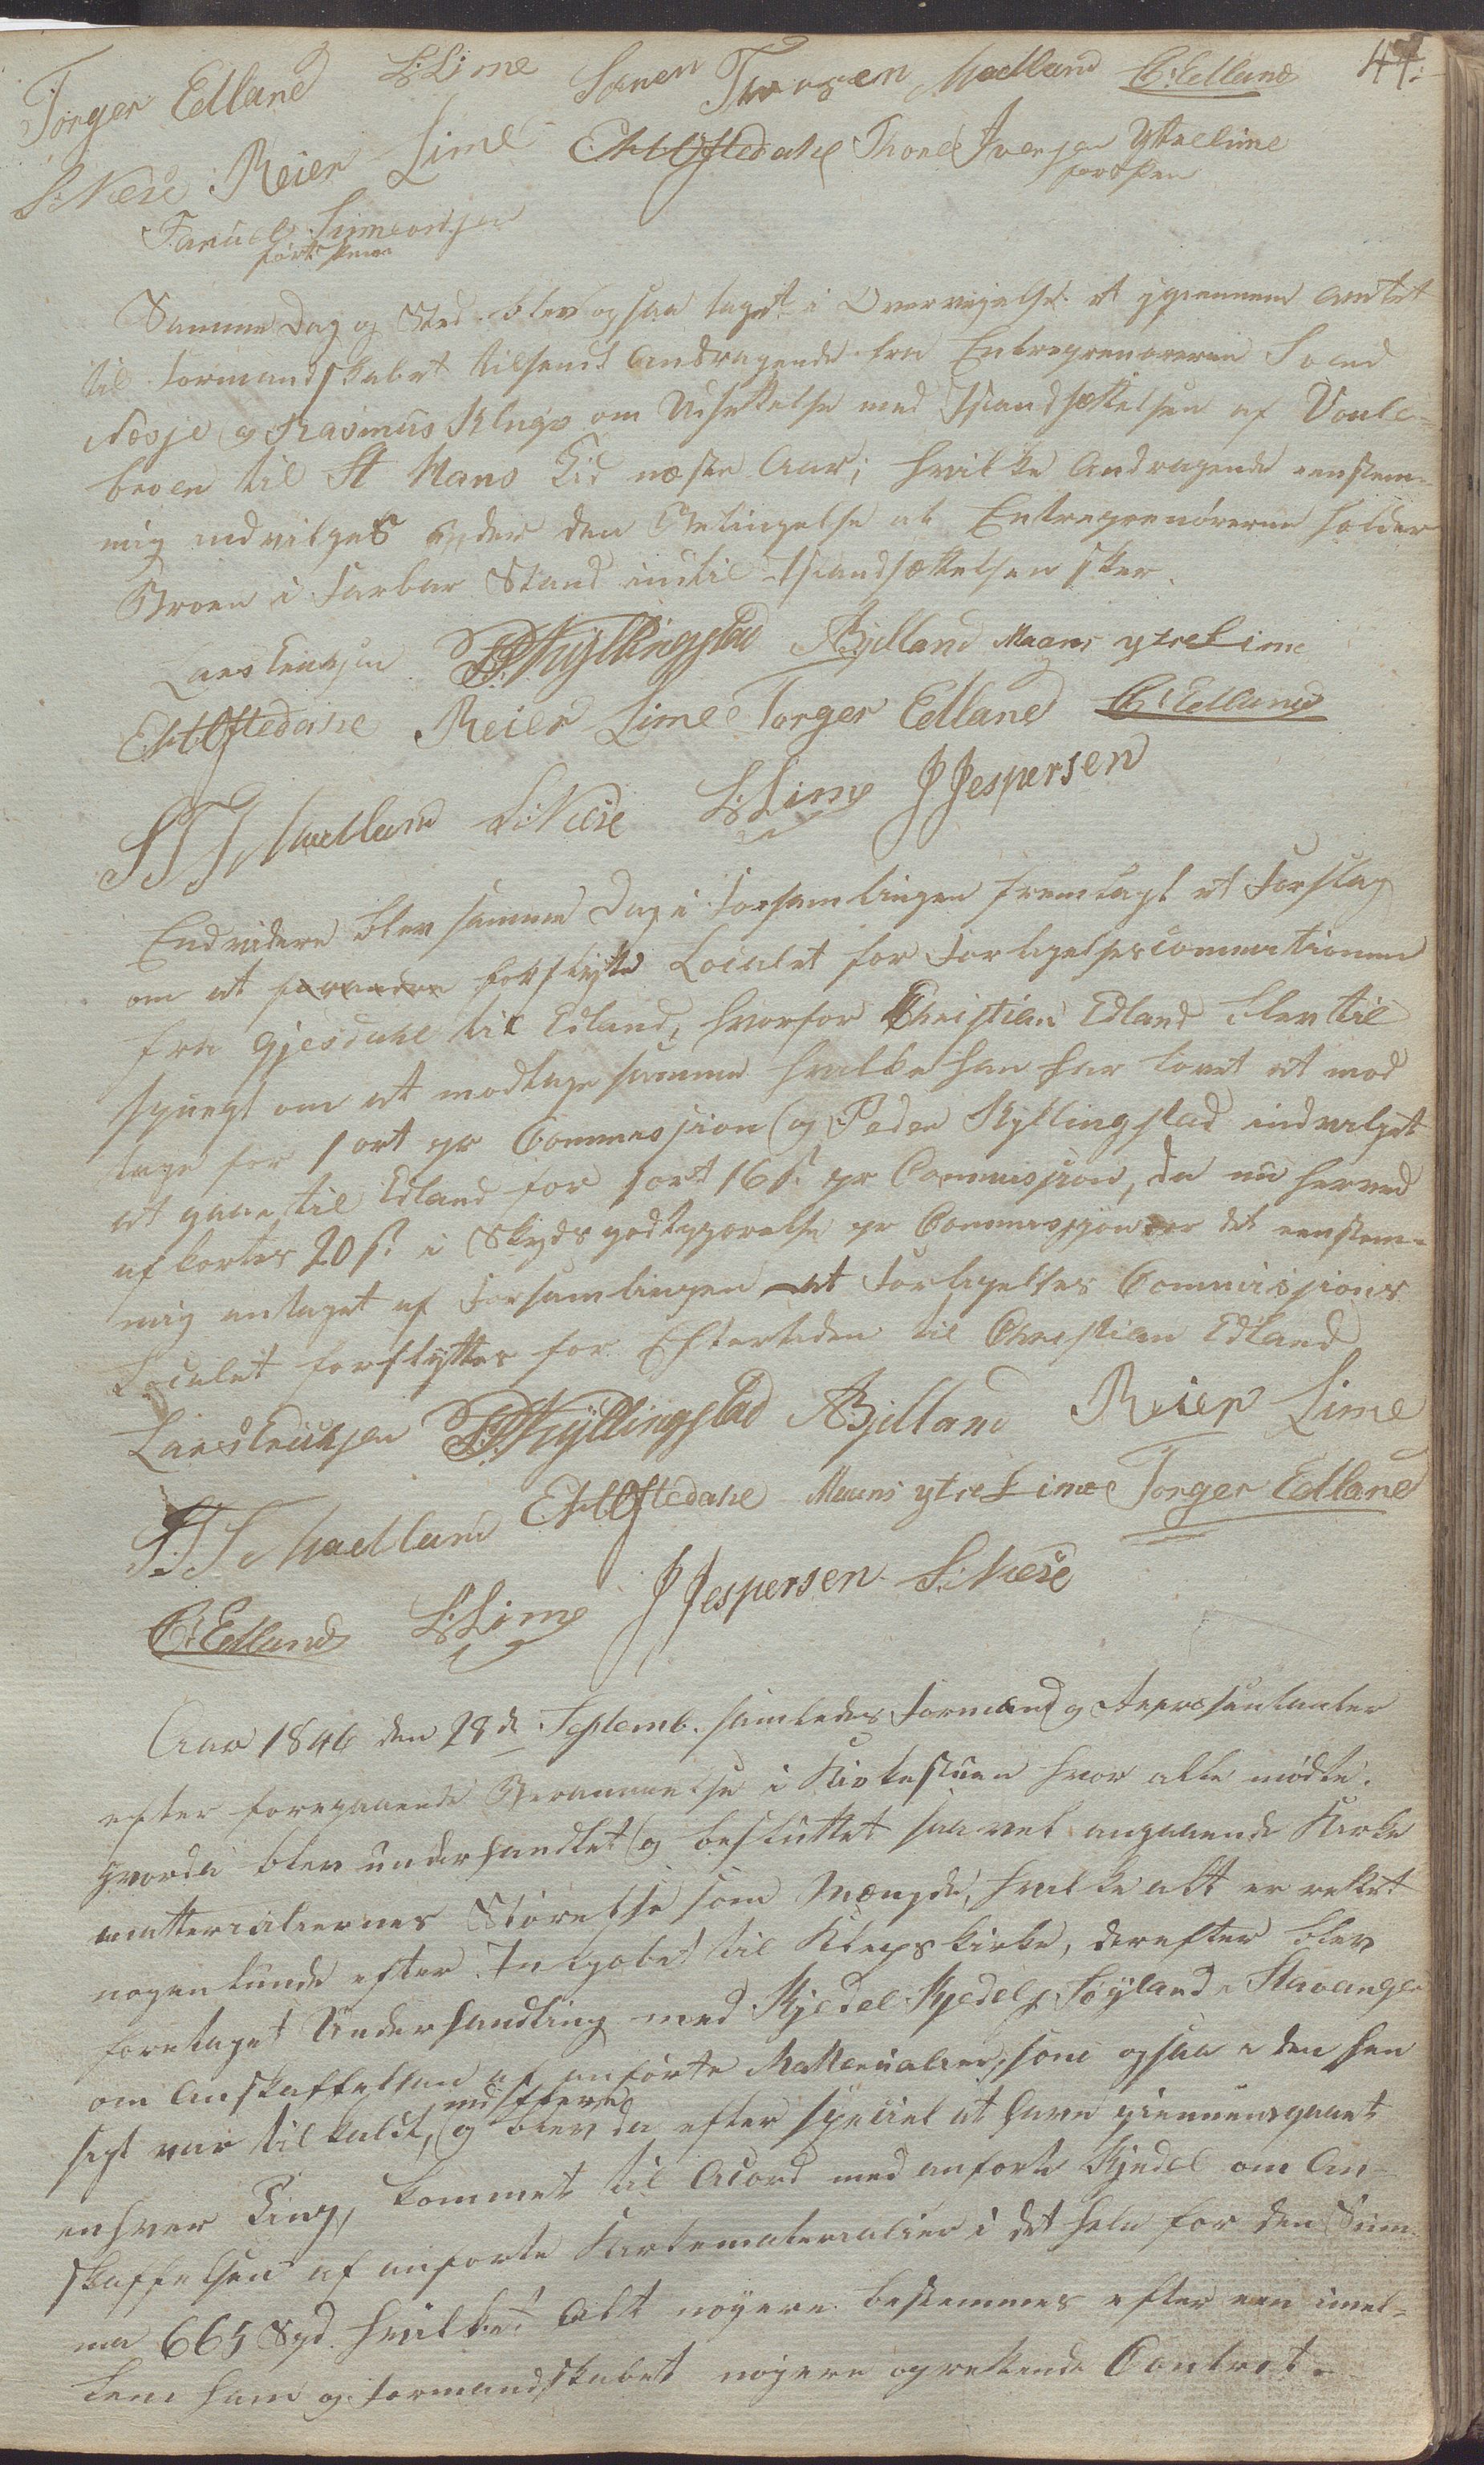 47.
Torger Edland L: Lime Sören Thorsen Madland C: Edland
S: Næse Reier Lime E A Oftedahl Thore Iversen Ytrelime
forsken
Samuel Simeonsen
fortsken
Samme Dag og Sted blev ogsaa taget i Overveielse et gjennem Amtet
til Formandskabet tilsendt Andragende fra Entreprenörerne Svend
Næsje og Rasmus Kluge om Udsettelse med Istandsættelsen af Vaule-
broen til St Hans Tid næste Aar; hvilke Andragende eenstem-
mig indvilges under den Betingelse at Entreprenörerne holder
Broen i Farbar Stand indtil Istandsættelsen sker.
Lars Eriksen P Kyllingstad A Bjelland Maans ytre Lime
E A Oftedahl Reier Lime Torger Edland C: Edland
S T Madland S: Næse L: Lime J Jespersen
Endvidere blev samme Dag i Forsamlingen fremlagt et Forslag
om at forandre forflytte Localet for Forligelsescommissionen
fra Gjesdahl til Edland, hvorfor Christian Edland blev til
spurgt om at modtage samme hvilke han har lovet at mod
tage for 1 ort pr Commission og Peder Kyllingstad indvilget
at gaae til Edland for 1 ort 16 s. pr Commission, da nu herved
afkortes 20 s. i Skydsgodtgjörelse pr Commission er det eenstem-
mig antaget af Forsamlingen at Forligelses Commissions
Localet forflyttes for Eftertiden til Christian Edland
Lars Eriksen P Kyllingstad A Bjelland Reier Lime
S T Madland E A Oftedahl Maans ytre Lime Torger Edland
C: Edland L: Lime J Jespersen S: Næse
Aar 1846 den 28de Septemb. samledes Formænd og Repræsentanter
efter foregaaende Berammelse i Kirkestuen hvor alle mödte.
hvorda blev underhandlet og besluttet saavel angaaende Kirke
matterialiernes Störelse som Mængde, hvilke alt er rettet
nogenlunde efter Indkjöbet til Kleps kirke, derefter blev
foretaget Underhandling med Kjedel Kjedels. Söyland i Stavanger
om Anskaffelsen af anförte Matterialier, som ogsaa i den hen
sigt var tilkaldt, og blev da efter speciel at have giennemgaaet
indstevnt
enhver Ting, kommet til Acord med anförte Kjedel om An-
skaffelsen af anförte Kirkematerialier i det hele for den Sum-
ma 665 Spd. hvilket Alt nöyere bestemmes efter een imel-
lem ham og Formandskabet nöyere oprettende Contract.